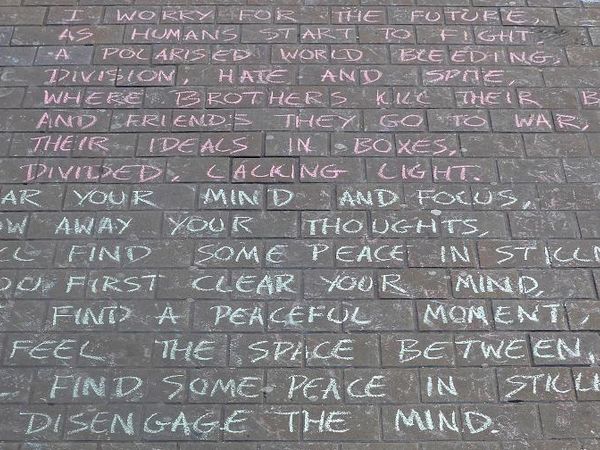 I WORRY FOR THE FUTURE,
AS HUMANS START TO FIGHT.
A POLARISED WORLD BLEEDING,
DIVISION, HATE AND SPITE,
WHERE BROTHERS KILL THEIR B
AND FRIENDS THEY GO TO WAR,
THEIR IDEALS IN BOXES,
DIVIDED, LACKING LIGHT.
AR YOUR MIND AND FOCUS,
OW AWAY YOUR THOUGHTS,
LL FIND SOME PEACE IN STILLN
OU FIRST CLEAR YOUR MIND,
FIND A PEACEFUL MOMENT,
FEEL THE SPACE BETWEEN,
L FIND SOME PEACE IN STILL
DISENGAGE THE MIND.